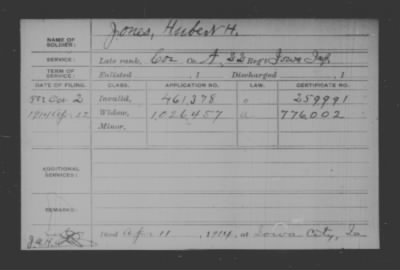 NAME OF SOLDIER: Jones, Hubert H.
SERVICE: Late rank, Cor Co. A, 22 Reg't Iowa Inf.
TERM OF SERVICE: Enlisted , 1 Discharged , 1
DATE OF FILING. CLASS. APPLICATION NO. LAW. CERTIFICATE NO.
2 Invalid, 461378 259991
1914 Ap. 22 Widow, 1026457 776002
Minor,
ADDITIONAL SERVICES:
REMARKS:
Died Ap. 11, 1914, at Iowa City, Ia